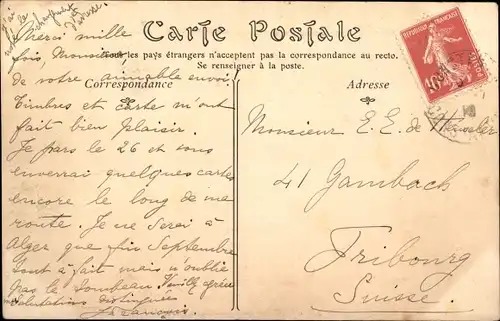 j'ai
le
changement
d'adresse
Carte Postale
Tous les pays étrangers n'acceptent pas la correspondance au recto.
Se renseigner à la poste.
Correspondance
Adresse
RÉPUBLIQUE FRANÇAISE
10
Merci mille
fois, Monsieur,
de votre aimable envoi.
Timbres et carte m'ont
fait bien plaisir.
Je pars le 26 et vous
enverrai quelques cartes
encore le long de me
route. Je ne serai à
Alger que fin Septembre
tout à fait mais n'oublie
pas le tombeau. Veuillez agréer
salutations distinguées
Monsieur E. E. de
41 Gambach
Fribourg
Suisse.